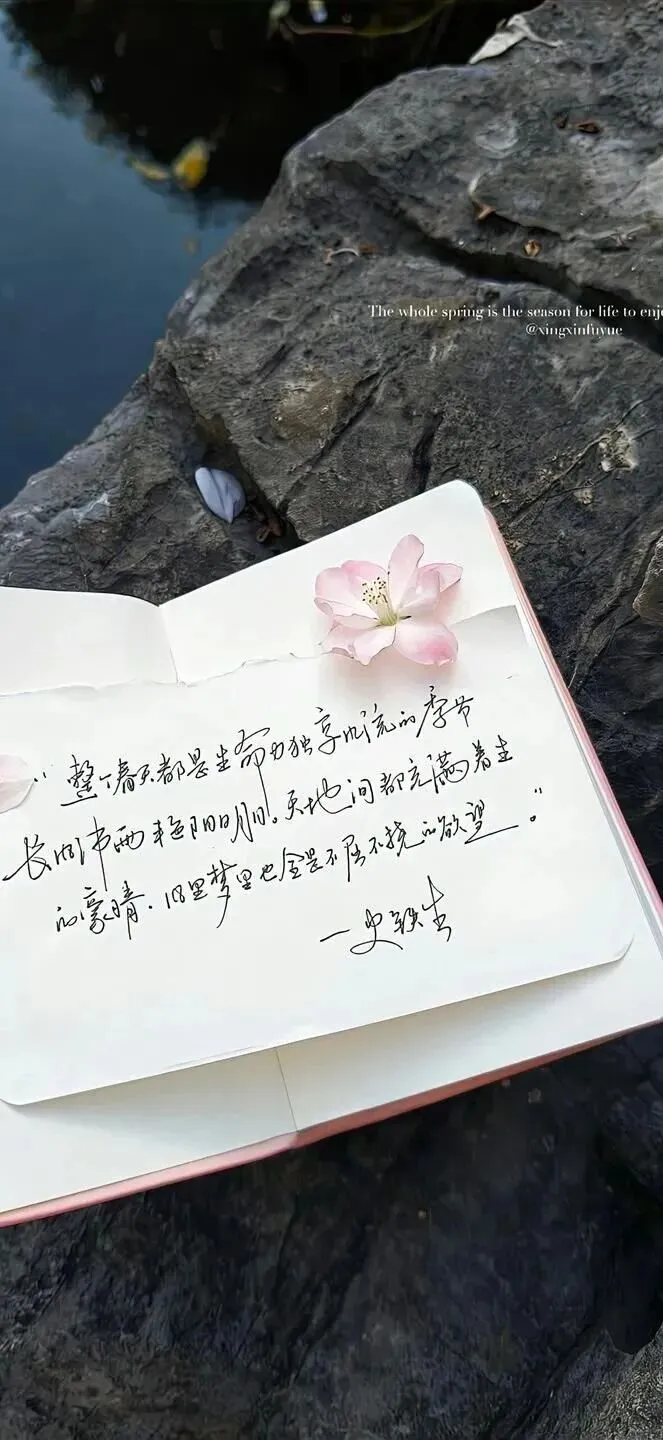 The whole spring is the season for life to enj
@xingxinfuyue
“整个春天都是生命力独享风流的季节
长风沛雨艳阳明月。天地间都充满着生
的豪情.风里梦里也全是不屈不挠的欲望。”
—史铁生